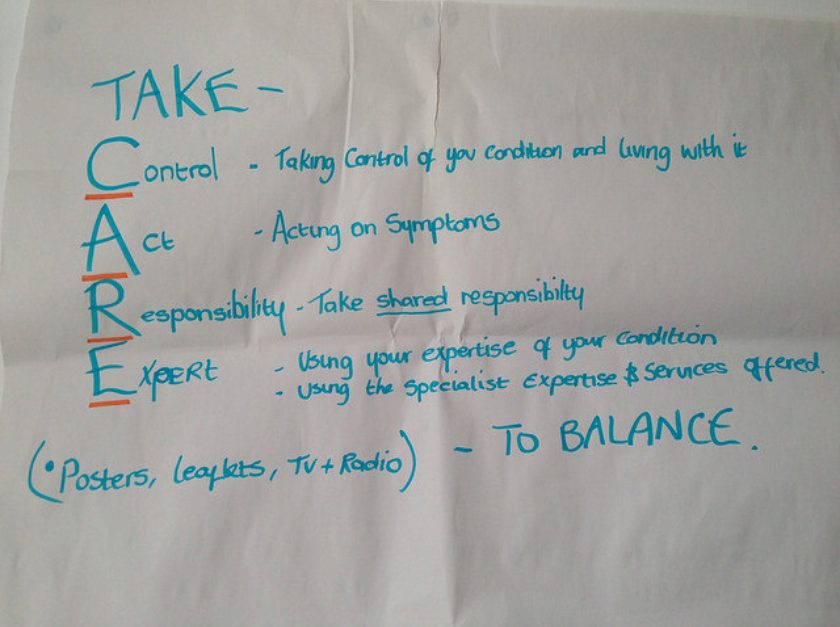 TAKE -
Control - Taking Control of you condition and living with it
Act - Acting on Symptoms
Responsibility - Take shared responsibilty
Expert - Using your expertise of your condition
- Using the specialist Expertise & Services offered.
(• Posters, leaflets, TV + Radio) - TO BALANCE.